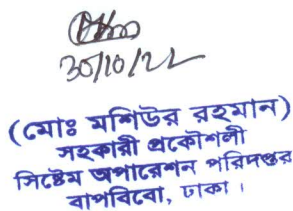 30/10/22
(মোঃ মশিউর রহমান)
সহকারী প্রকৌশলী
সিষ্টেম অপারেশন পরিদপ্তর
বাপবিবো, ঢাকা ।